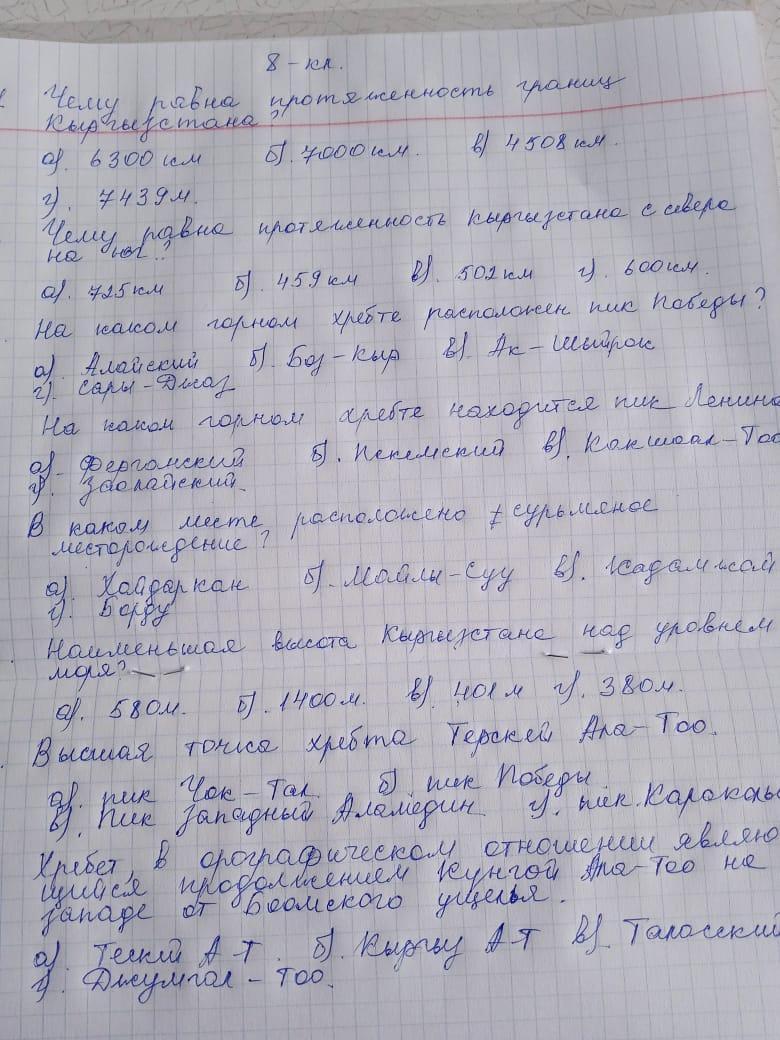 8-кл.
Чему равна протяженность границ
Кыргызстана?
а). 6300 км б). 7000 км. в) 4508 км.
г). 7439 м.
Чему равна протяженность кыргызстана с севера
на юг?
а). 725 км б). 459 км в). 502 км г). 600 км.
На каком горном хребте расположен пик Победы?
а). Алайский б). Боз-Кыр в). Ак-Шыйрок
г). Сары-Джаз
На каком горном хребте находится пик Ленина
а). Ферганский б). Пскемский в). Какшаал-Тоо
г). Заалайский.
В каком месте расположено сурьмяное
месторождение?
а). Хайдаркан б). Майлы-Суу в). Кадамжай
г). Борду
Наименьшая высота Кыргызстана над уровнем
моря?
а). 580 м. б). 1400 м. в). 401 м г). 380 м.
Высшая точка хребта Терскей Ала-Тоо.
а). пик Чок-Тал б). пик Победы
в). Пик Западный Аламедин г). пик. Каракольс
Хребет, в орографическом отношении являю
щийся продолжением Кунгой Ала-Тоо на
западе от Боомского ущелья.
а) Теский А-Т. б). Кыргыз А-Т в). Таласский
г). Джумгал-Тоо.